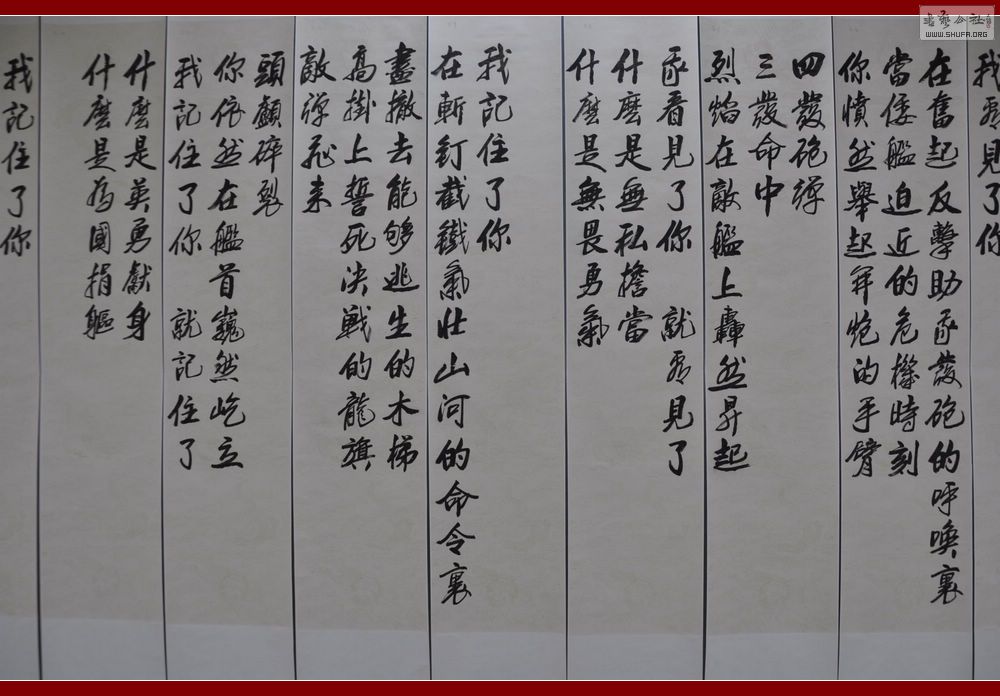 我看見了你
在奮起反擊助我發砲的呼喚裏
當倭艦迫近的危機時刻
你憤然舉起开炮的手臂
四發砲彈
三發命中
烈焰在敵艦上轟然昇起
我看見了你 就看見了
什麼是無私擔當
什麼是無畏勇氣
我記住了你
在斬釘截鐵氣壯山河的命令裏
盡撤去能够逃生的木梯
高掛上誓死決戰的龍旗
敵彈飛来
頭顱碎裂
你依然在艦首巍然屹立
我記住了你 就記住了
什麼是英勇獻身
什麼是為國捐軀
我記住了你
书藝公社
WWW.SHUFA.ORG